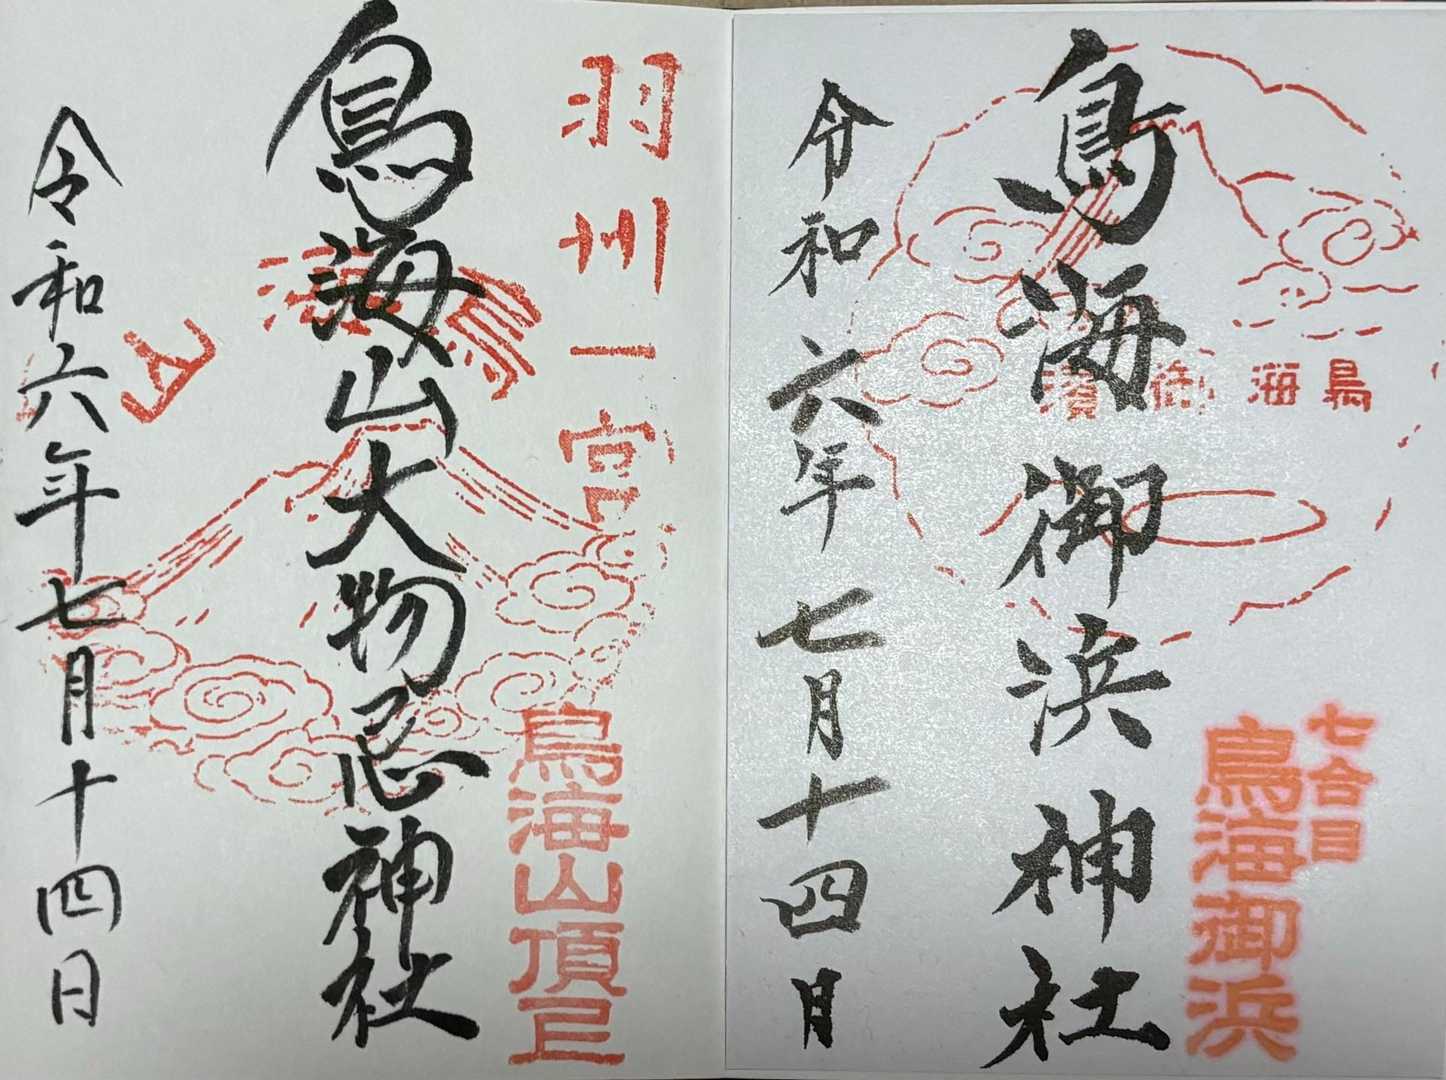 鳥海御濱
七合目
鳥海御浜
鳥海御浜神社
令和六年七月十四月
羽州一宮
鳥海山頂上
鳥海山
鳥海山大物忌神社
令和六年七月十四日